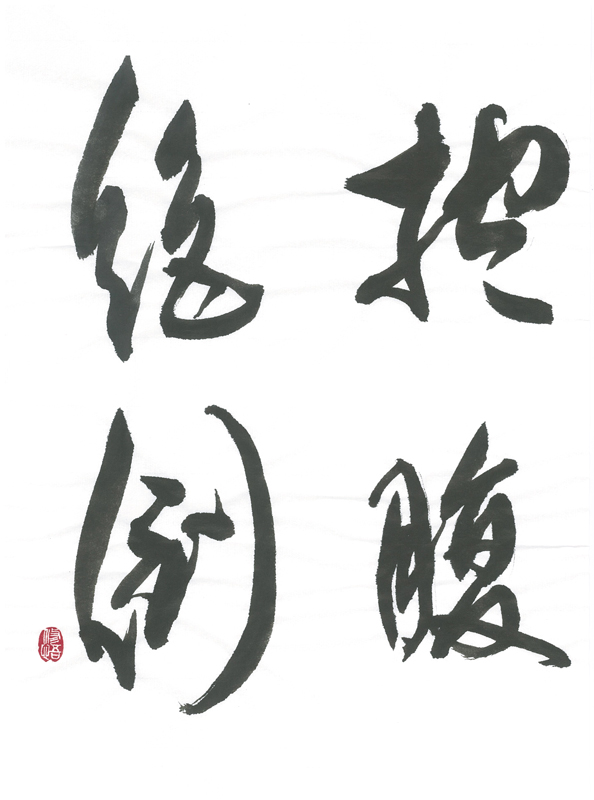 抱腹
絶倒